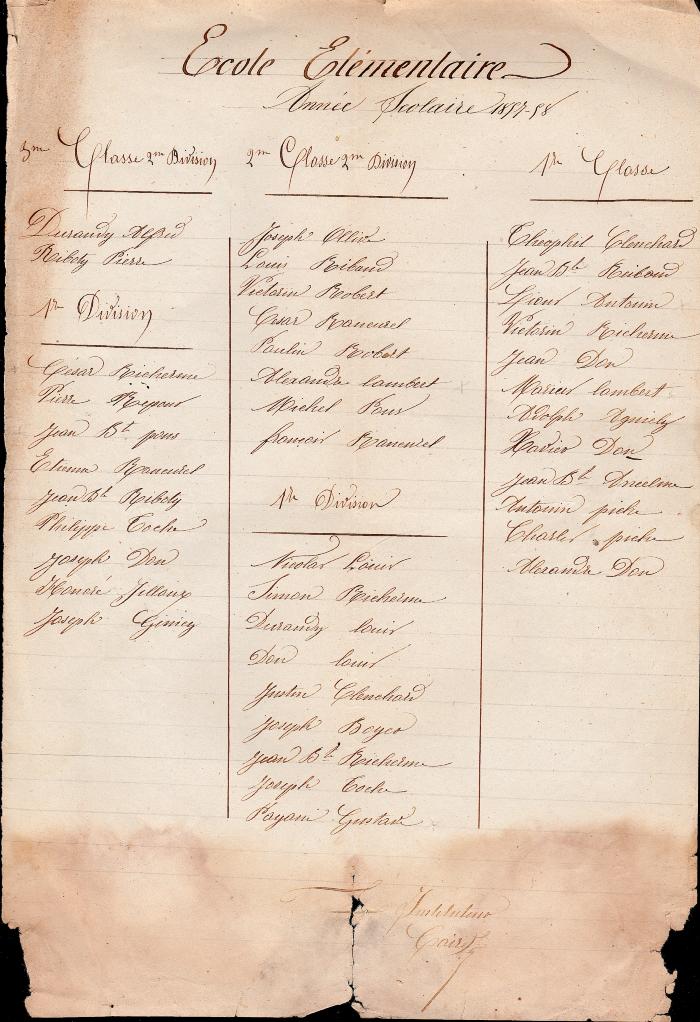 Ecole Elémentaire
Année Scolaire 1897-98
3me Classe 2me Division
Durandy Alfred
Riboty Pierre
1re Division
César Richerme
Pierre Repous
Jean Bte pons
Etienne Rancurel
Jean Bte Riboty
Philippe Toche
Joseph Don
Honoré Jilloux
Joseph Giniey
2me Classe 2me Division
Joseph Ollive
Louis Ribaud
Victorin Robert
César Rancurel
Paulin Robert
Alexandre lambert
Michel Pons
françois Rancurel
1re Division
Nicolas Louis
Simon Richerme
Durandy louis
Don louis
Justin Clenchard
Joseph Boyer
Jean Bte Richerme
Joseph Toche
Payani Gustave
1re Classe
Théophile Clenchard
Jean Bte Ribaud
Antonin
Victorin Richerme
Jean Don
Marius lambert
Adolph
Xavier Don
Jean Bte Ancelme
Antonin piche
Charles piche
Alexandre Don
Instituteur